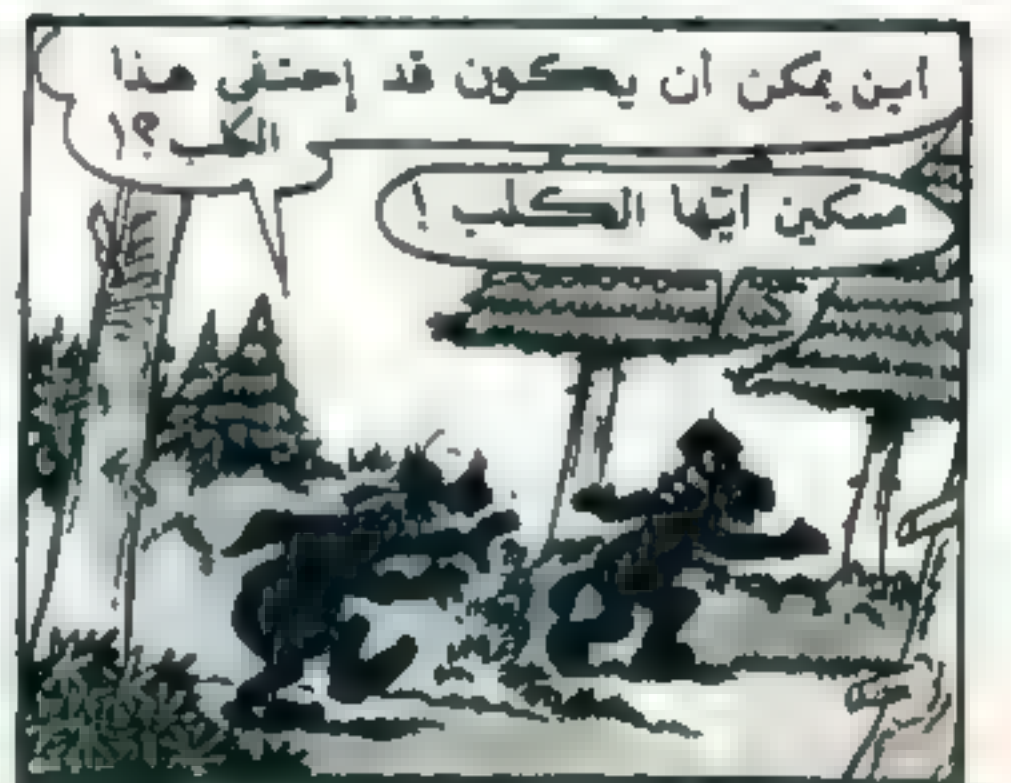 اين يمكن أن يكون قد إختفى هذا
الكلب ؟!
مسكين ايّها الكلب !